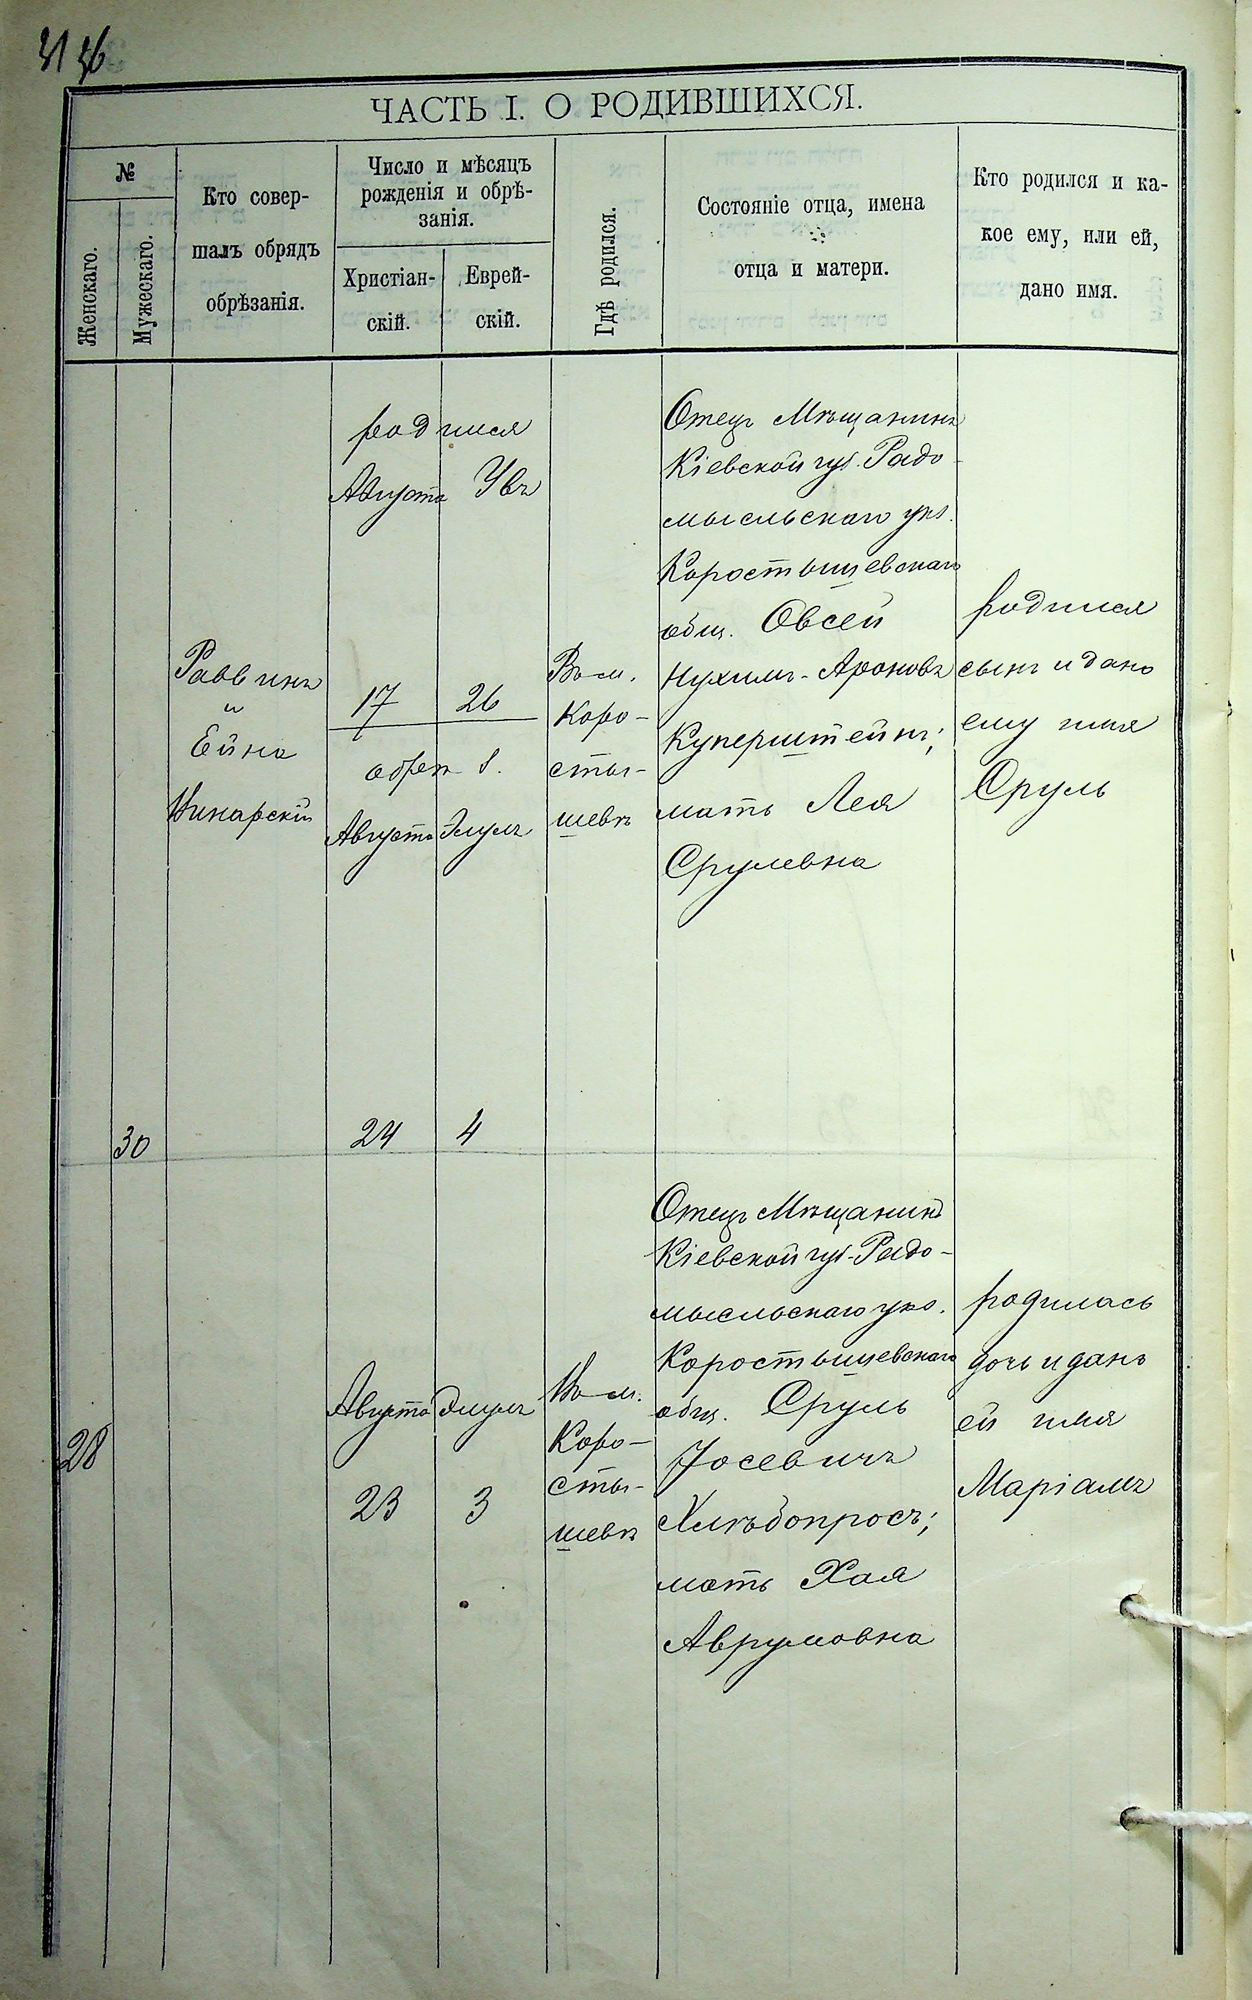 31 36
ЧАСТЬ I. О РОДИВШИХСЯ.
№
Женскаго.
Мужескаго.
Кто совер-
шалъ обрядъ
обрѣзанія.
Число и мѣсяцъ
рожденія и обрѣ-
занія.
Христіан-
скій.
Еврей-
скій.
Гдѣ родился.
Состояніе отца, имена
отца и матери.
Кто родился и ка-
кое ему, или ей,
дано имя.
30
Раввинъ
и
Ейна
Винарскій
родился
Августа Увъ
17 26
обрѣз.
Августа Элулъ
24 4
Въ м.
Коро-
сты-
шевѣ
Отецъ Мѣщанинъ
Кіевской губ. Радо-
мысльскаго уѣз.
Коростышевскаго
общ. Овсей
Нухимъ-Ароновъ
Куперштейнъ;
мать Лея
Срулевна
родился
сынъ и дано
ему имя
Сруль
28
Августа Элулъ
23 3
Въ м.
Коро-
сты-
шевѣ
Отецъ Мѣщанинъ
Кіевской губ. Радо-
мысльскаго уѣз.
Коростышевскаго
общ. Сруль
Іосевичъ
Хлѣбопросъ;
мать Хая
Аврумовна
родилась
дочь и дано
ей имя
Маріамъ